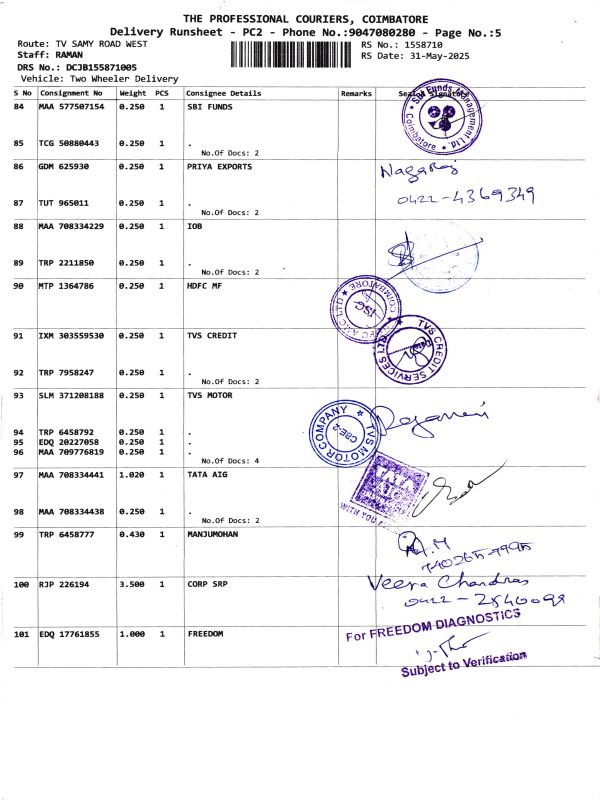 THE PROFESSIONAL COURIERS, COIMBATORE
Delivery Runsheet - PC2 - Phone No.:9047080280 - Page No.:5
Route: TV SAMY ROAD WEST
RS No.: 1558710
Staff: RAMAN
RS Date: 31-May-2025
DRS No.: DCJB155871005
Vehicle: Two Wheeler Delivery
S No Consignment No Weight PCS Consignee Details Remarks Seal & Signature
84 MAA 577507154 0.250 1 SBI FUNDS
SBI Funds Management Pvt Ltd. Coimbatore
85 TCG 50880443 0.250 1 .
No.Of Docs: 2
86 GDM 625930 0.250 1 PRIYA EXPORTS
Nagaraj
0422-4369349
87 TUT 965011 0.250 1 .
No.Of Docs: 2
88 MAA 708334229 0.250 1 IOB
89 TRP 2211850 0.250 1 .
No.Of Docs: 2
90 MTP 1364786 0.250 1 HDFC MF
COIMBATORE
ISC
91 IXM 303559530 0.250 1 TVS CREDIT
TVS CREDIT SERVICES LTD
92 TRP 7958247 0.250 1 .
No.Of Docs: 2
93 SLM 371208188 0.250 1 TVS MOTOR
TVS MOTOR COMPANY
CBE-2
94 TRP 6458792 0.250 1 .
95 EDQ 20227058 0.250 1 .
96 MAA 709776819 0.250 1 .
No.Of Docs: 4
97 MAA 708334441 1.020 1 TATA AIG
TATA
AIG
WITH YOU
98 MAA 708334438 0.250 1 .
No.Of Docs: 2
99 TRP 6458777 0.430 1 MANJUMOHAN
100 RJP 226194 3.500 1 CORP SRP
Veera Chandras
101 EDQ 17761855 1.000 1 FREEDOM
For FREEDOM DIAGNOSTICS
Subject to Verification